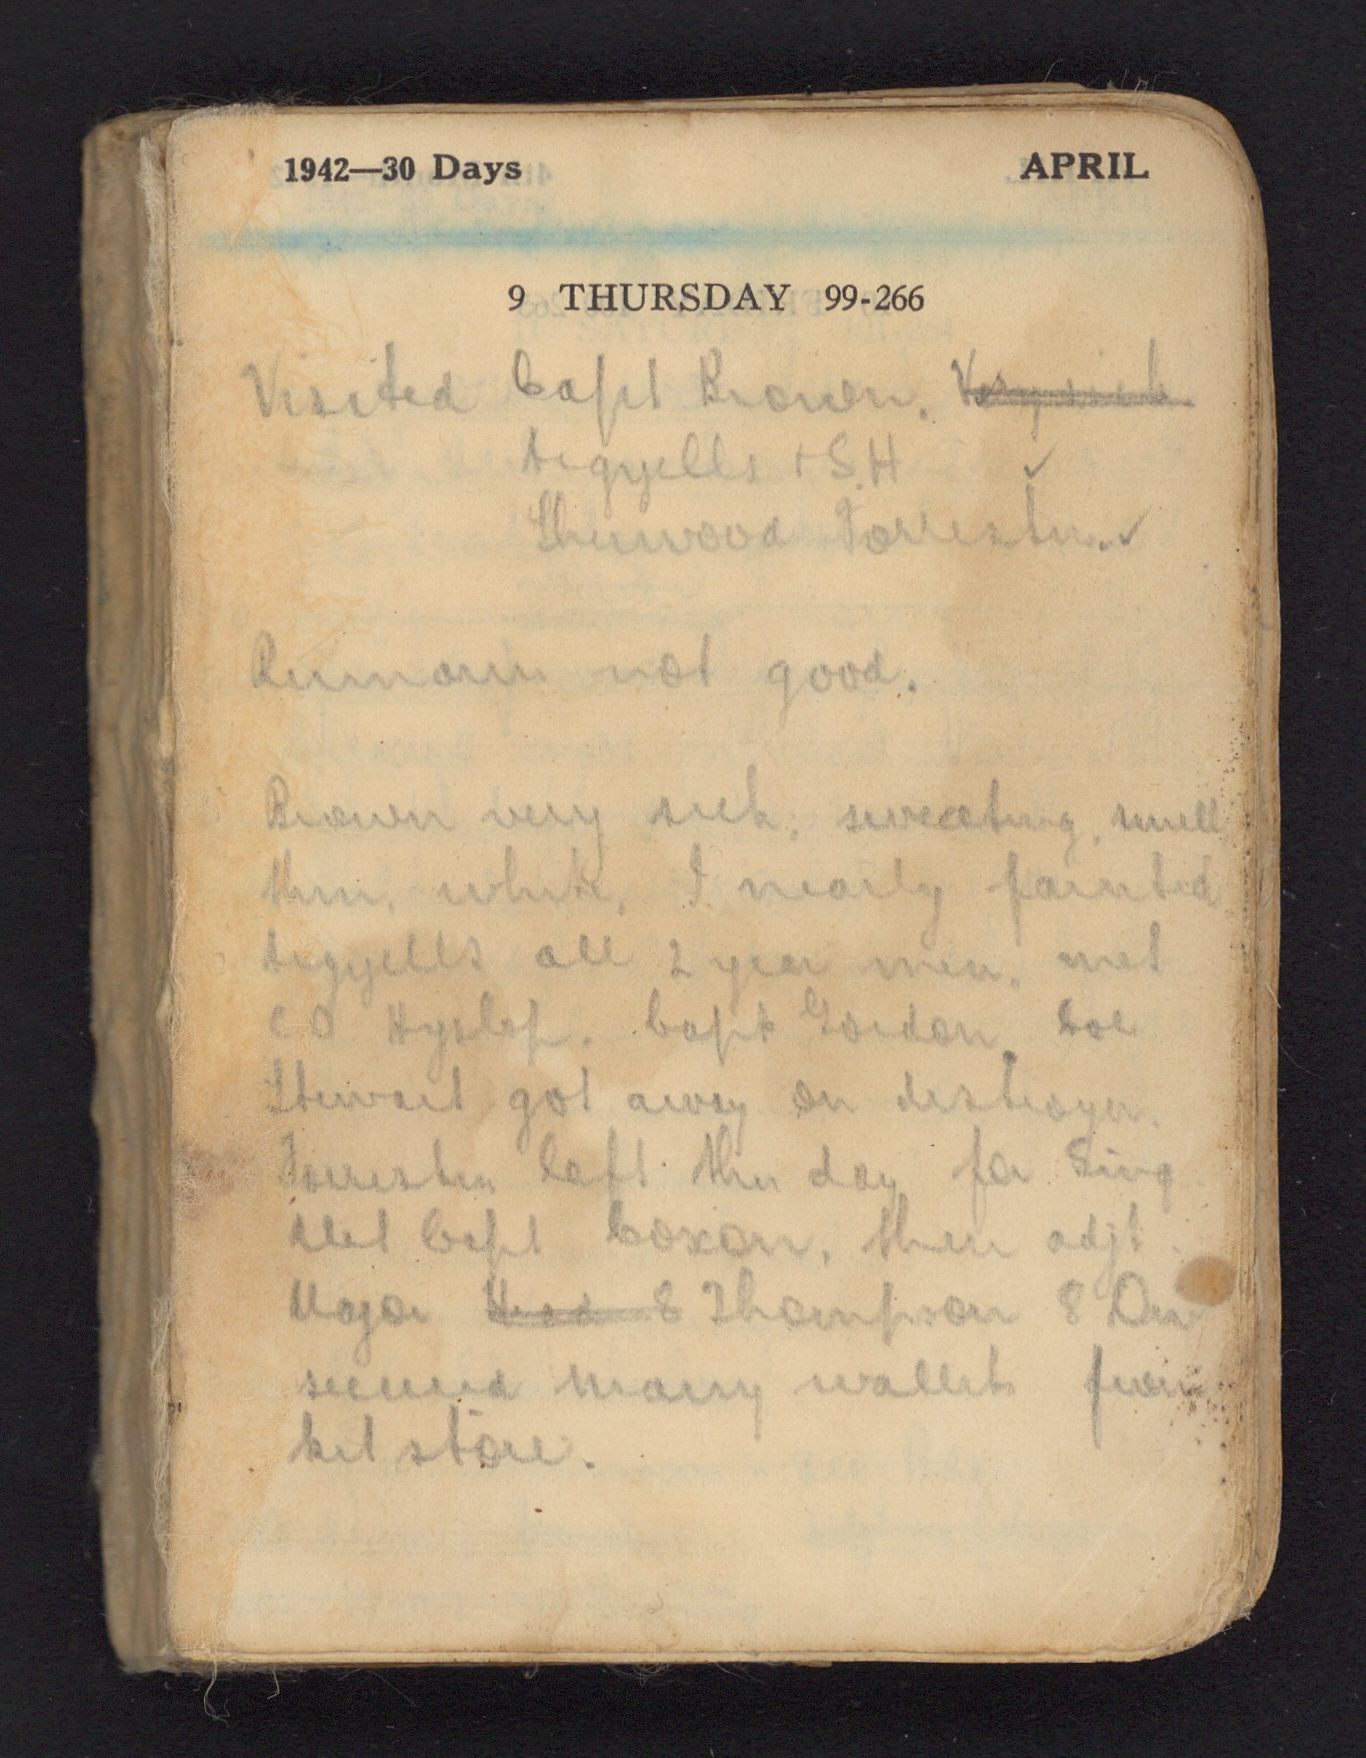 1942—30 Days APRIL
9 THURSDAY 99-266
Visited Capt Brown. Very sick
Argylls + S.H ✓
Sherwood Forresters. ✓
Rumours not good.
Brown very sick, sweating, smell
thin, white, I nearly fainted
Argylls all 2 year men, met
CO Hyslop. Capt Gordon, Col
Stewart got away on destroyer.
Forresters left this day for Sing
Met Capt Coxon, their adjt
Major Thompson 8 Div
secured many wallets from
kit store.